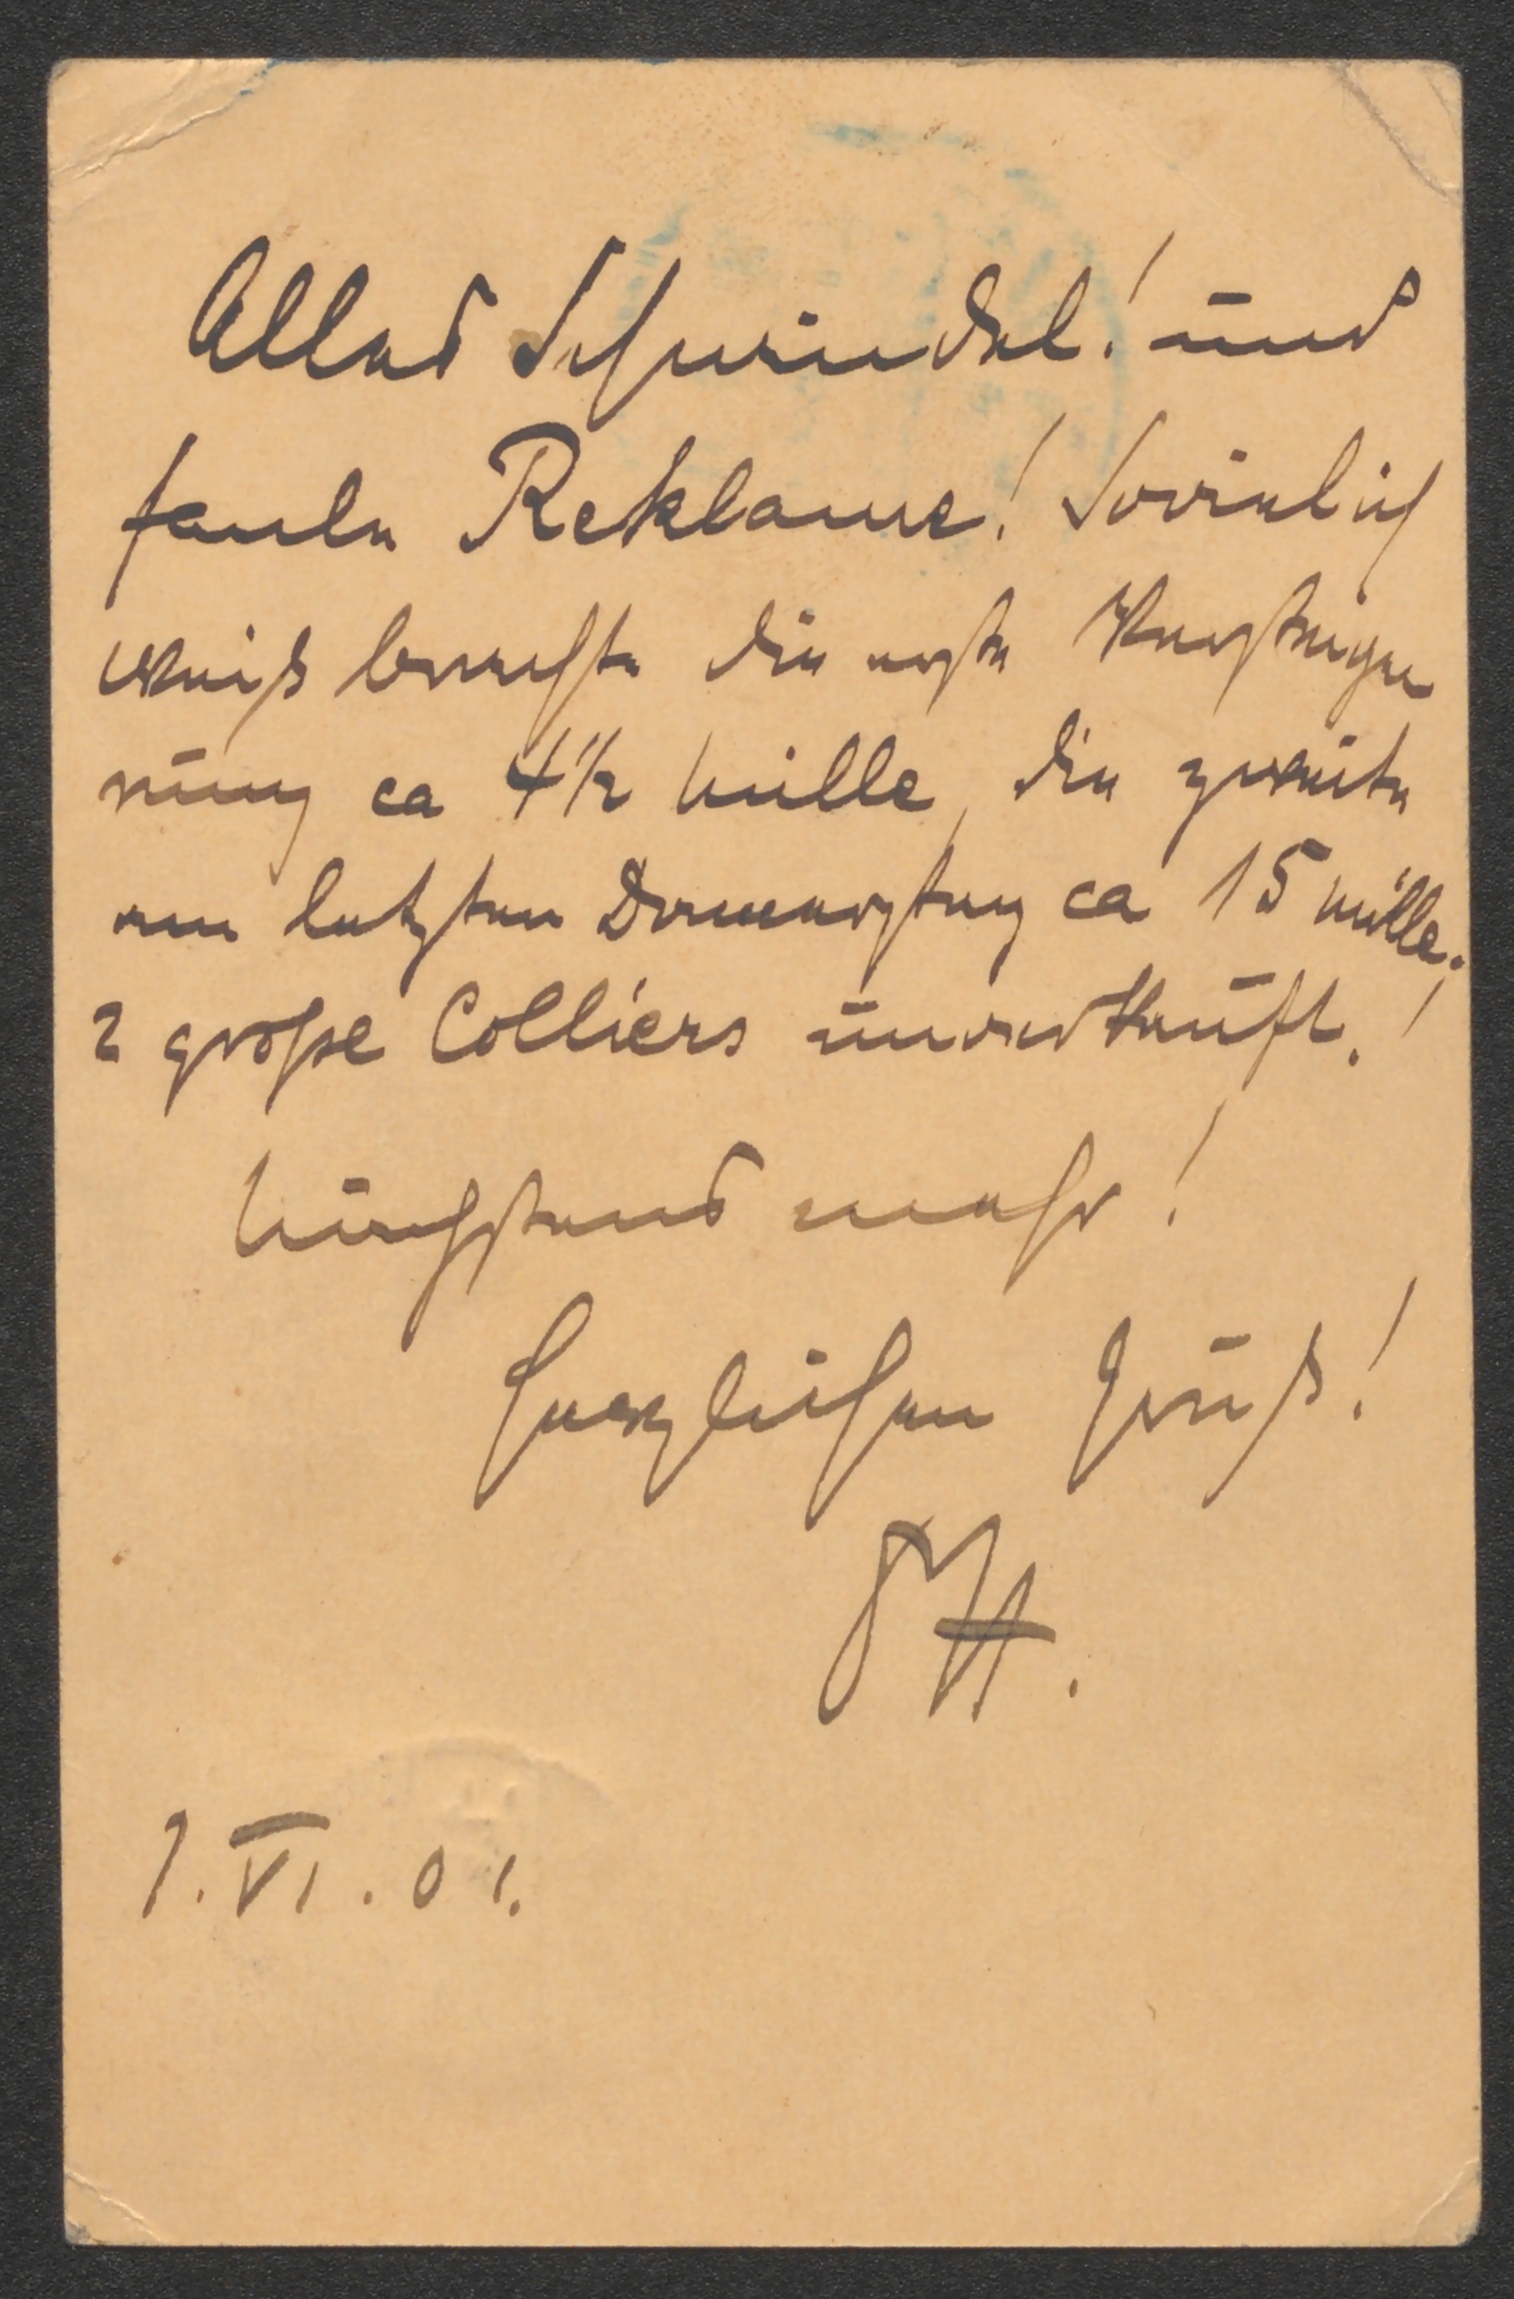 Alles Schwindel! und
faule Reklame! Soviel ich
weiß brachte die erste Versteige
rung ca 4½ Mille, die zweite
am letzten Donnerstag ca 15 Mille.
2 große Colliers unverkauft.!
Nächstens mehr!
Herzlichen Gruß!
MH.
1.VI.01.